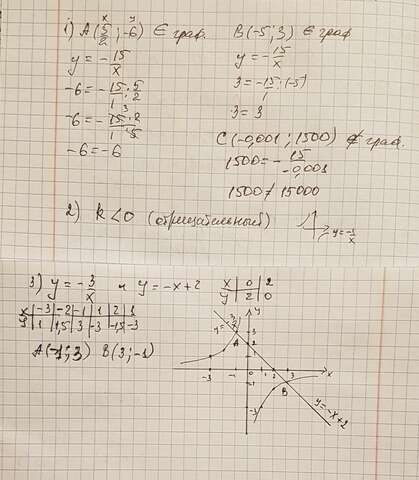 x y
1) A(5/2 ; -6) ∈ граф. B(-5; 3) ∈ граф
y = - 15/x
-6 = - 15/1 : 5/2
-6 = - 15·2/1·5
-6 = -6
y = - 15/x
3 = -15/1 : (-5)
3 = 3
C(-0,001; 1500) ∉ граф.
1500 = - 15/-0,001
1500 ≠ 15000
2) k < 0 (отрицательный)
y = -1/x
3) y = - 3/x и y = -x+2
x 0 2
y 2 0
x -3 -2 -1 1 2
y 1 1,5 3 -3 -1,5
A(-1; 3) B(3; -1)
y = -3/x
y
3
A
2
-3 -1 0 1 2 3 x
-1
B
-3
y = -x+2